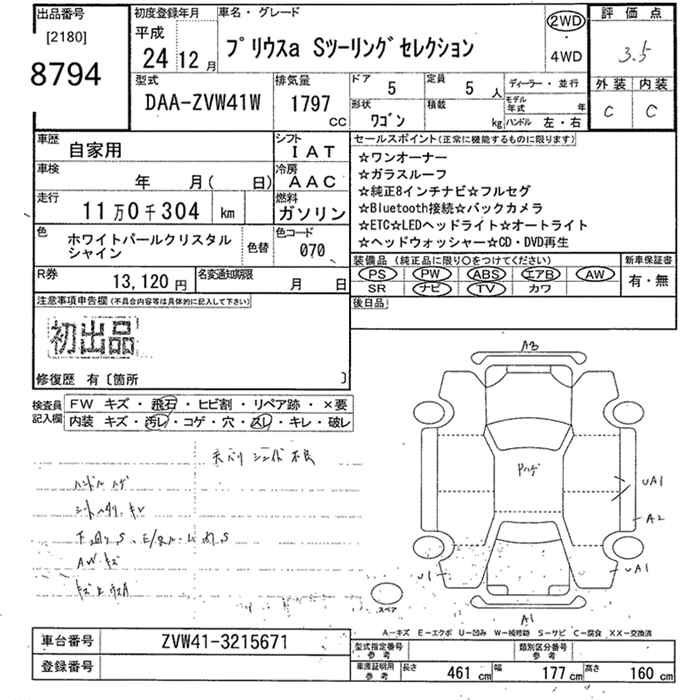 出品番号
[2180]
8794
初度登録年月
平成
24 12 月
車名・グレード
プリウスa Sツーリングセレクション
2WD
・
4WD
評価点
3.5
外装 内装
C C
型式
DAA-ZVW41W
排気量
1797 CC
ドア 5
定員 5 人
形状 ワゴン
積載 kg
ディーラー・並行
モデル年式 年
ハンドル 左・右
車歴
自家用
シフト
IAT
車検
年 月( 日)
冷房
AAC
走行
11万0千304 km
燃料
ガソリン
色
ホワイトパールクリスタル
シャイン
色替
色コード
070
R券
13,120円
名変通知期限
月 日
セールスポイント(正常に機能するものに限ります)
☆ワンオーナー
☆ガラスルーフ
☆純正8インチナビ☆フルセグ
☆Bluetooth接続☆バックカメラ
☆ETC☆LEDヘッドライト☆オートライト
☆ヘッドウォッシャー☆CD・DVD再生
装備品(純正品に限り○をつけてください)
PS PW ABS エアB AW
SR ナビ TV カワ
新車保証書
有・無
後日品
注意事項申告欄(不具合内容等は具体的に記入して下さい)
初出品
修復歴 有〔箇所 〕
検査員
記入欄
FW キズ・飛石・ヒビ割・リペア跡・×要
内装 キズ・汚レ・コゲ・穴・スレ・キレ・破レ
ハンドルハゲ
AWキズ
A3
UA1
A2
U1
UA1
A1
スペア
A-キズ E-エクボ U-凹み W-補修跡 S-サビ C-腐食 XX-交換済
車台番号
ZVW41-3215671
登録番号
型式指定番号
参考
類別区分番号
参考
車庫証明用
参考
長さ 461 cm 幅 177 cm 高さ 160 cm